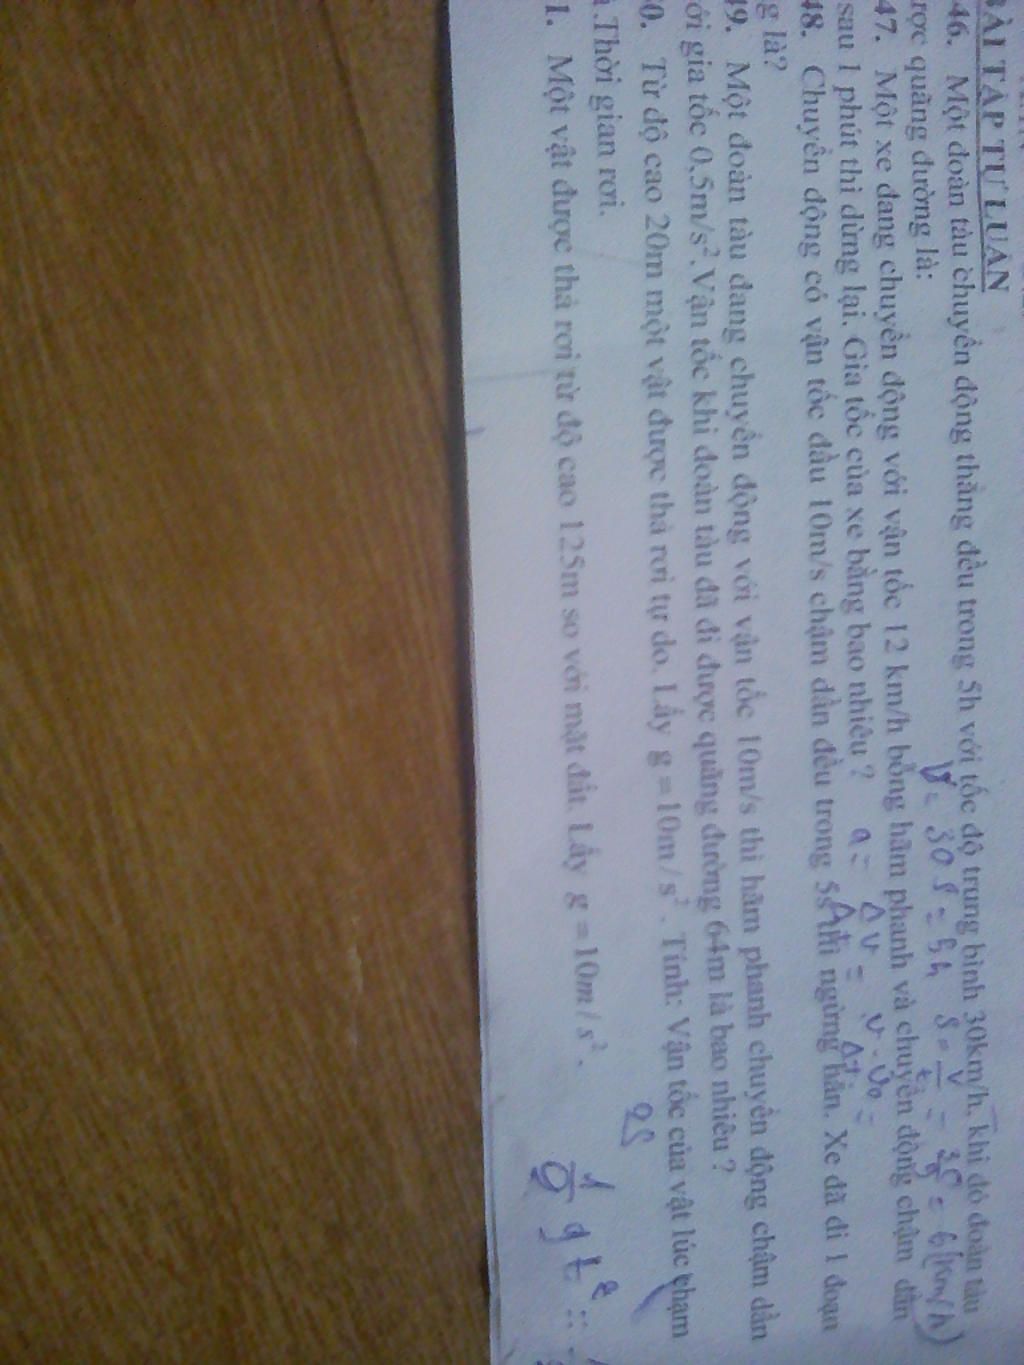 BÀI TẬP TỰ LUẬN
46. Một đoàn tàu chuyển động thẳng đều trong 5h với tốc độ trung bình 30km/h, khi đó đoàn tàu
V = 30 S = 5h S = v/t = 30/5 = 6 (km/h)
ược quãng đường là:
47. Một xe đang chuyển động với vận tốc 12 km/h bỗng hãm phanh và chuyển động chậm dần
sau 1 phút thì dừng lại. Gia tốc của xe bằng bao nhiêu ? a = Δv/Δt = v - v0/Δt =
48. Chuyển động có vận tốc đầu 10m/s chậm dần đều trong 5s thì ngừng hẳn. Xe đã đi 1 đoạn
g là?
49. Một đoàn tàu đang chuyển động với vận tốc 10m/s thì hãm phanh chuyển động chậm dần
ới gia tốc 0,5m/s².Vận tốc khi đoàn tàu đã đi được quãng đường 64m là bao nhiêu ?
0. Từ độ cao 20m một vật được thả rơi tự do. Lấy g = 10m / s². Tính: Vận tốc của vật lúc chạm
.Thời gian rơi. 2S
1. Một vật được thả rơi từ độ cao 125m so với mặt đất. Lấy g = 10m / s². 1/2 g t²